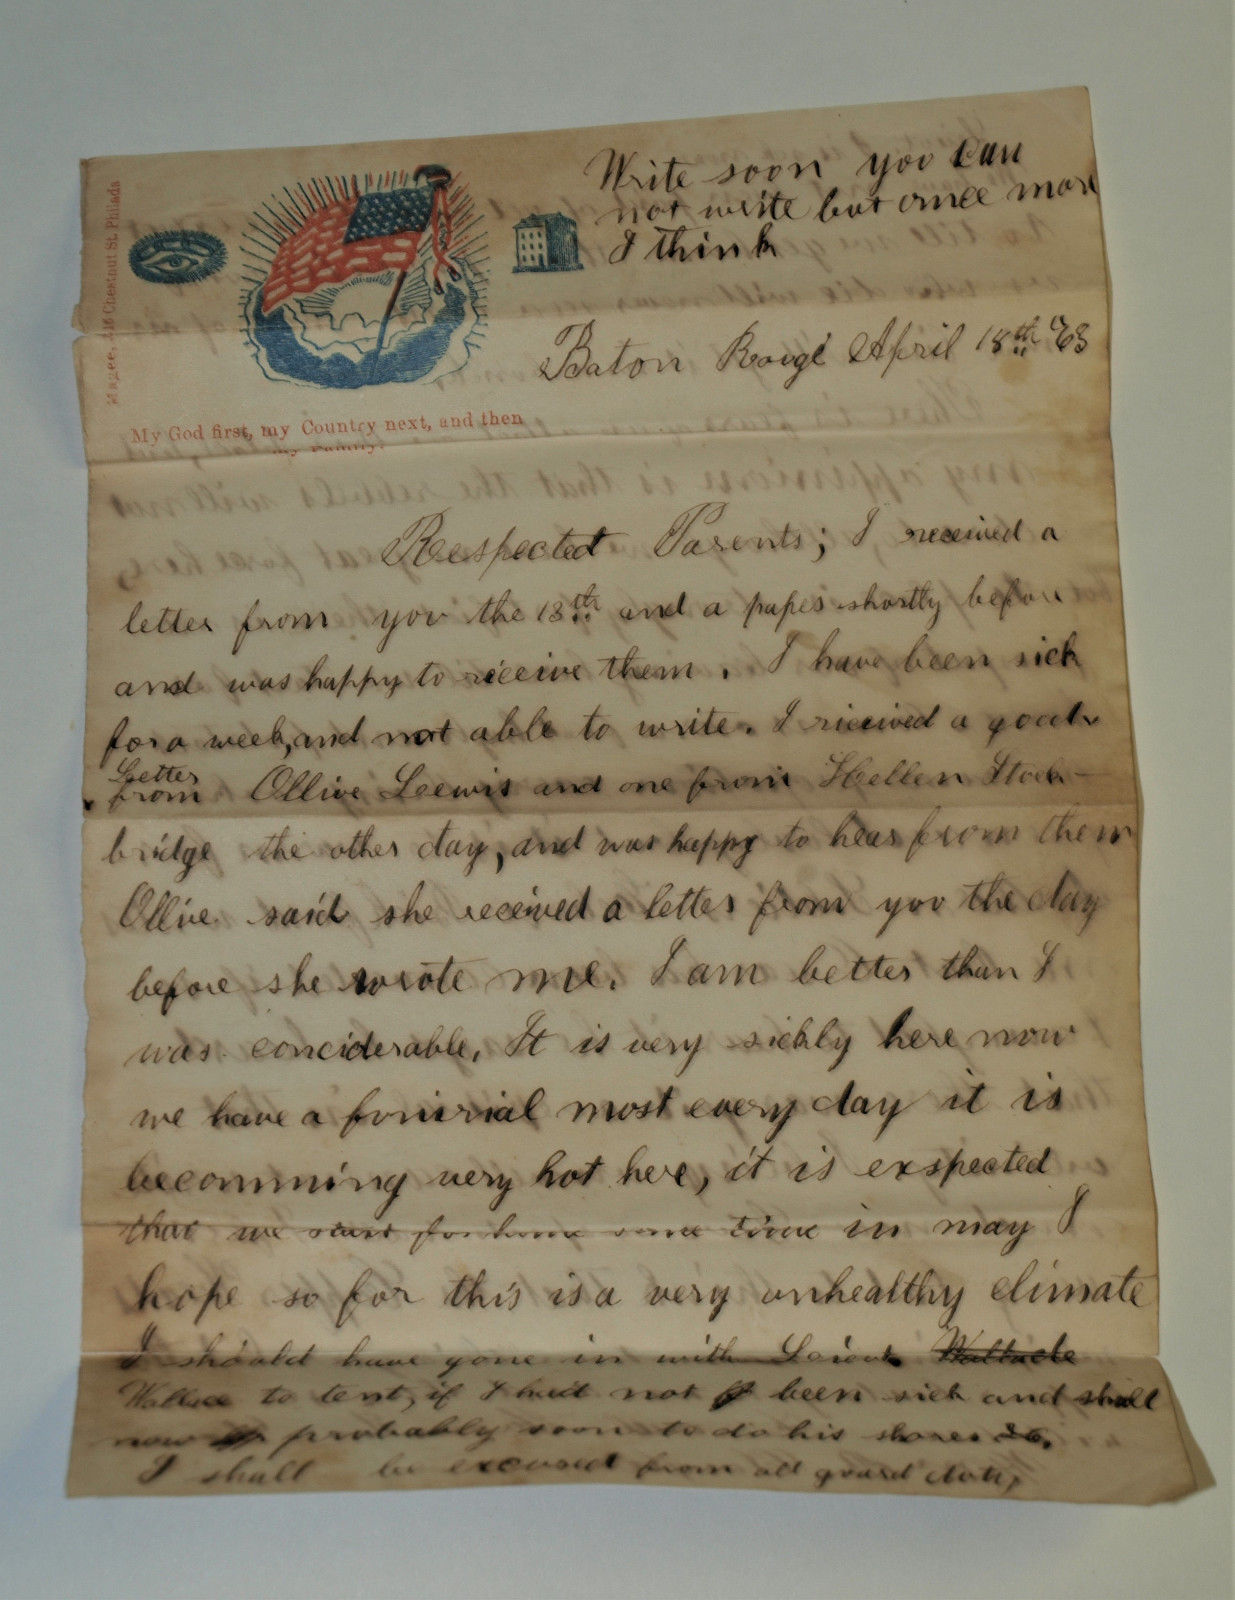 Magee, 316 Chestnut St. Philada
Write soon you can
not write but once more
I think
Baton Rouge April 18th '63
My God first, my Country next, and then
my Family.
Respected Parents; I received a
letter from you the 13th and a paper shortly before
and was happy to receive them. I have been sick
for a week, and not able to write. I received a good
Letter
from Ollive Leewis and one from Hellen Stock-
bridge the other day, and was happy to hear from them
Ollive said she received a letter from you the day
before she wrote me. I am better than I
was conciderable. It is very sickly here now
we have a funirial most every day it is
becomming very hot here, it is exspected
that we start for home some time in may I
hope so for this is a very unhealthy climate
I should have gone in with Wallace
Wallace to tent, if I had not been sick and shall
now probably soon to do his shores
I shall be excused from all guard duty,